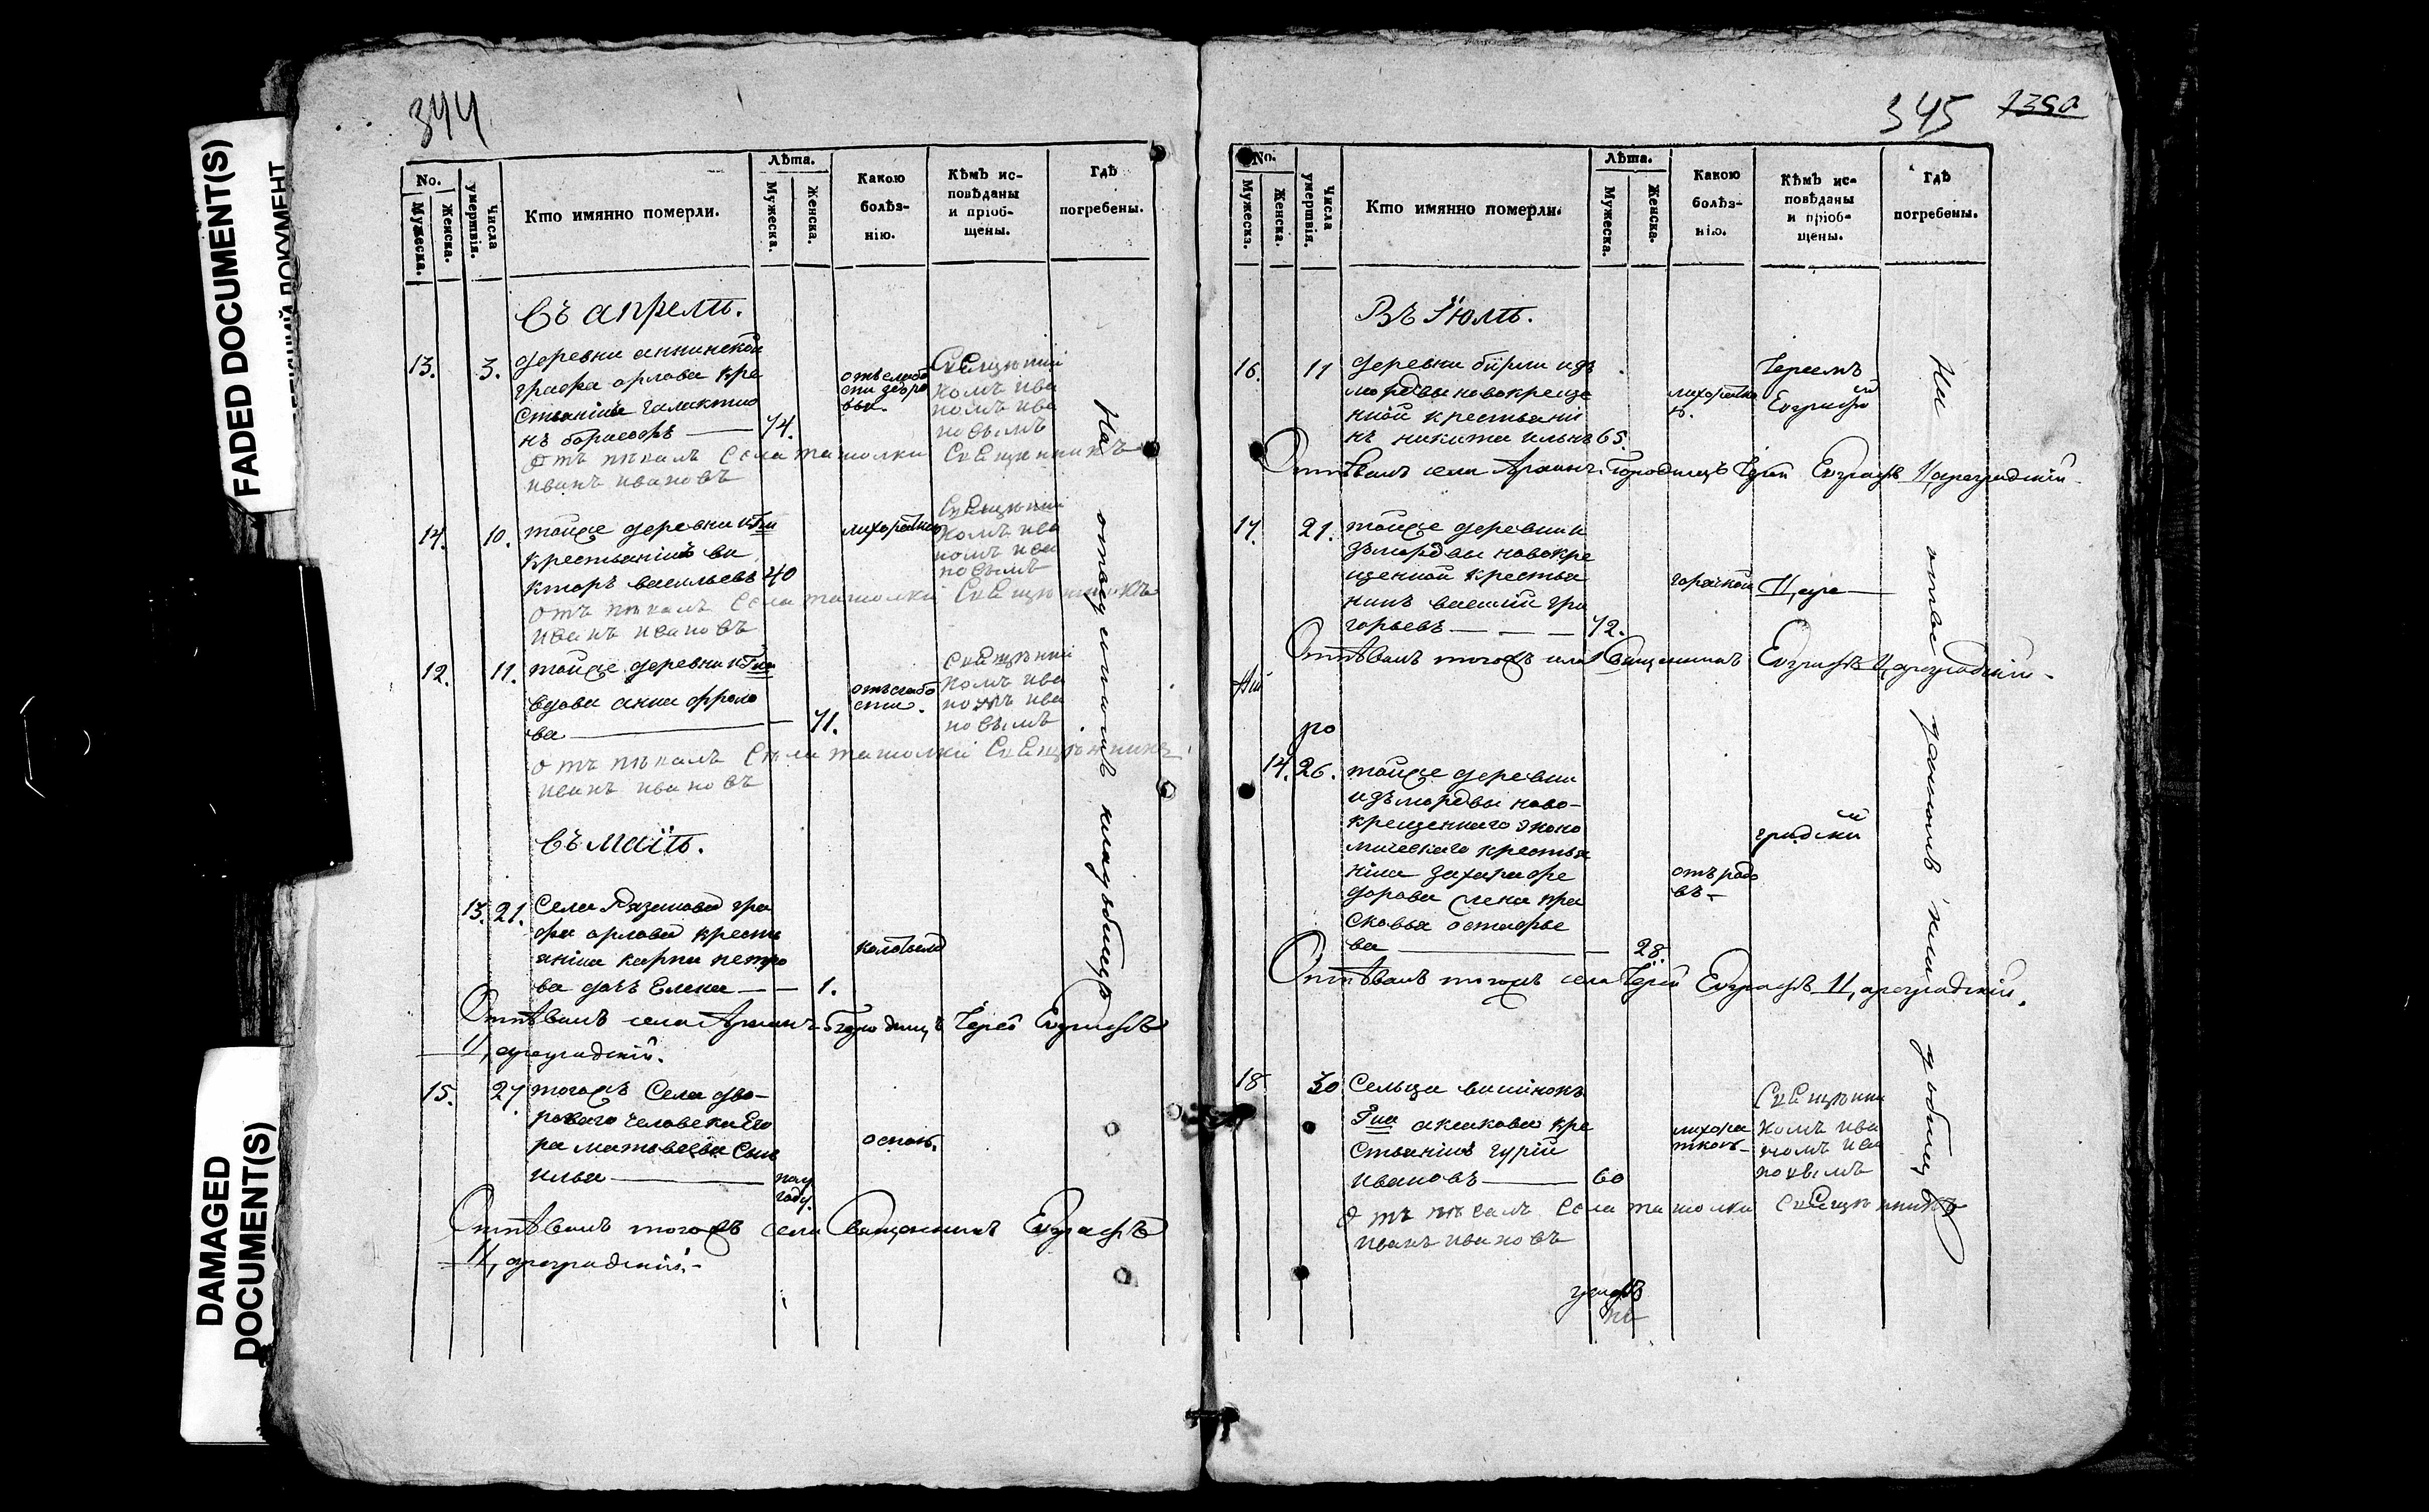 FADED DOCUMENT(S)
DAMAGED
DOCUMENT(S)
344
No.
Мужеска.
Женска.
Числа
умертвія.
Кто имянно померли.
Лѣта.
Мужеска.
Женска.
Какою
болѣз-
нію.
Кѣмъ ис-
повѣданы
и пріоб-
щены.
Гдѣ
погребены.
Въ апрелѣ.
13. 3. деревни аннинской
графа орлова кре
стьянинъ галактио
нъ борисовъ — 74.
отъ слабо
сти здоро
вья.
Священни
комъ ива
номъ ива
новымъ
отъ пѣвалъ села ташолки священникъ
иванъ ивановъ
14. 10. тойже деревни
крестьянинъ ви
кторъ васильевъ 40
лихораткою
Священни
комъ ива
номъ ива
новымъ
отъ пѣвалъ села ташолки священникъ
иванъ ивановъ
12. 11. тойже деревни
вдова анна фроло
ва — 71.
отъ слабо
сти.
Священни
комъ ива
номъ ива
новымъ
отъ пѣвалъ села ташолки священникъ
иванъ ивановъ
Въ маіѣ.
13. 21. Села Рязанова гра
фа орлова кресть
янина карпа петро
ва дочь Елена — 1.
Отпѣвалъ села Іерей Евграфъ
Цареградскій.
15. 27. тогожъ Села дво-
роваго человека Его
ра матвеева сынъ
илья — пол
года.
оспою.
Отпѣвалъ тогожъ села Священникъ Евграфъ
Цареградскій.-
На отведенномъ кладбищѣ
345 1390
No.
Мужеска.
Женска.
Числа
умертвія.
Кто имянно померли.
Лѣта.
Мужеска.
Женска.
Какою
болѣз-
нію.
Кѣмъ ис-
повѣданы
и пріоб-
щены.
Гдѣ
погребены.
Въ Іюлѣ.
16. 11 деревни бирли изъ
мордвы новокреще
нной крестьяни
нъ никита ильинъ 65.
Іереемъ
Евграфо
Отпѣвалъ села Іерей Евграфъ Цареградскій.
17. 21. тойже деревни и
зъ мордвы новокре
щенной крестья
нинъ василій гри
горьевъ — — — 72.
горячкой
Цаre—
Отпѣвалъ тогожъ села Священникъ Евграфъ Цареградскій.
14. 26. тойже деревни
изъ мордвы ново-
крещеннаго эконо
мическаго крестья
нина захара фе
дорова жена пра
сковья остафье
ва — 28.
отъ родо
въ.-
градски
Отпѣвалъ тогожъ села Іерей Евграфъ Цареградскій.
18. 30 Сельца
аксакова кре
стьянинъ гурій
ивановъ — 60
лихора
ткою-
Священни
комъ ива
номъ ива
новымъ
отъ пѣвалъ села ташолки священникъ
иванъ ивановъ
На отведенномъ кладбищѣ